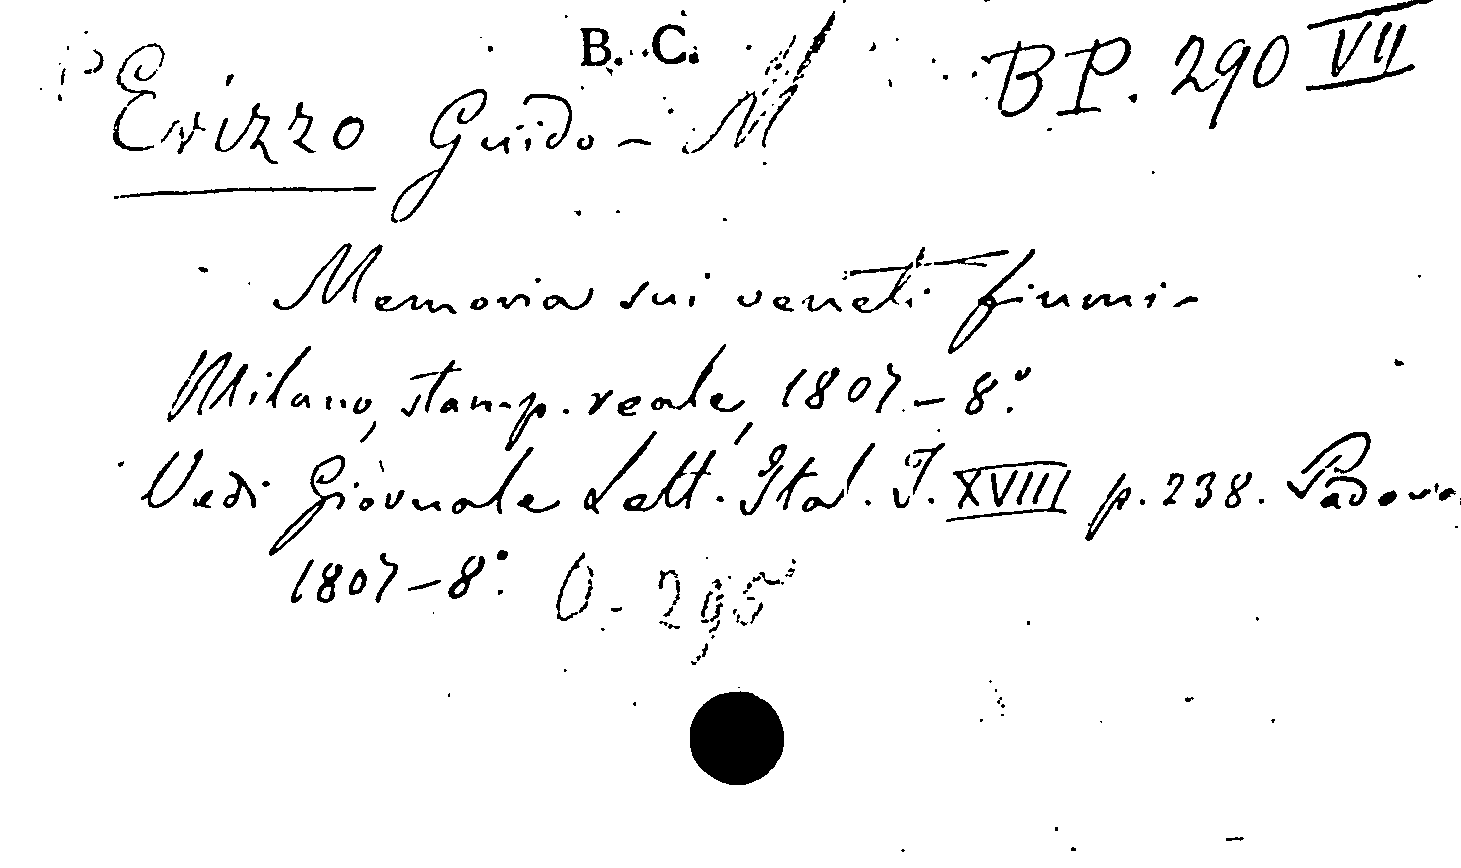 B. C.
BP. 290 VII
Erizzo Guido - M
Memoria sui veneti fiumi -
Milano, stamp. reale, 1807. - 8.°
Vedi Giornale Lett. Ital. T. XVIII p. 238. Padova
1807 - 8.° O. 295